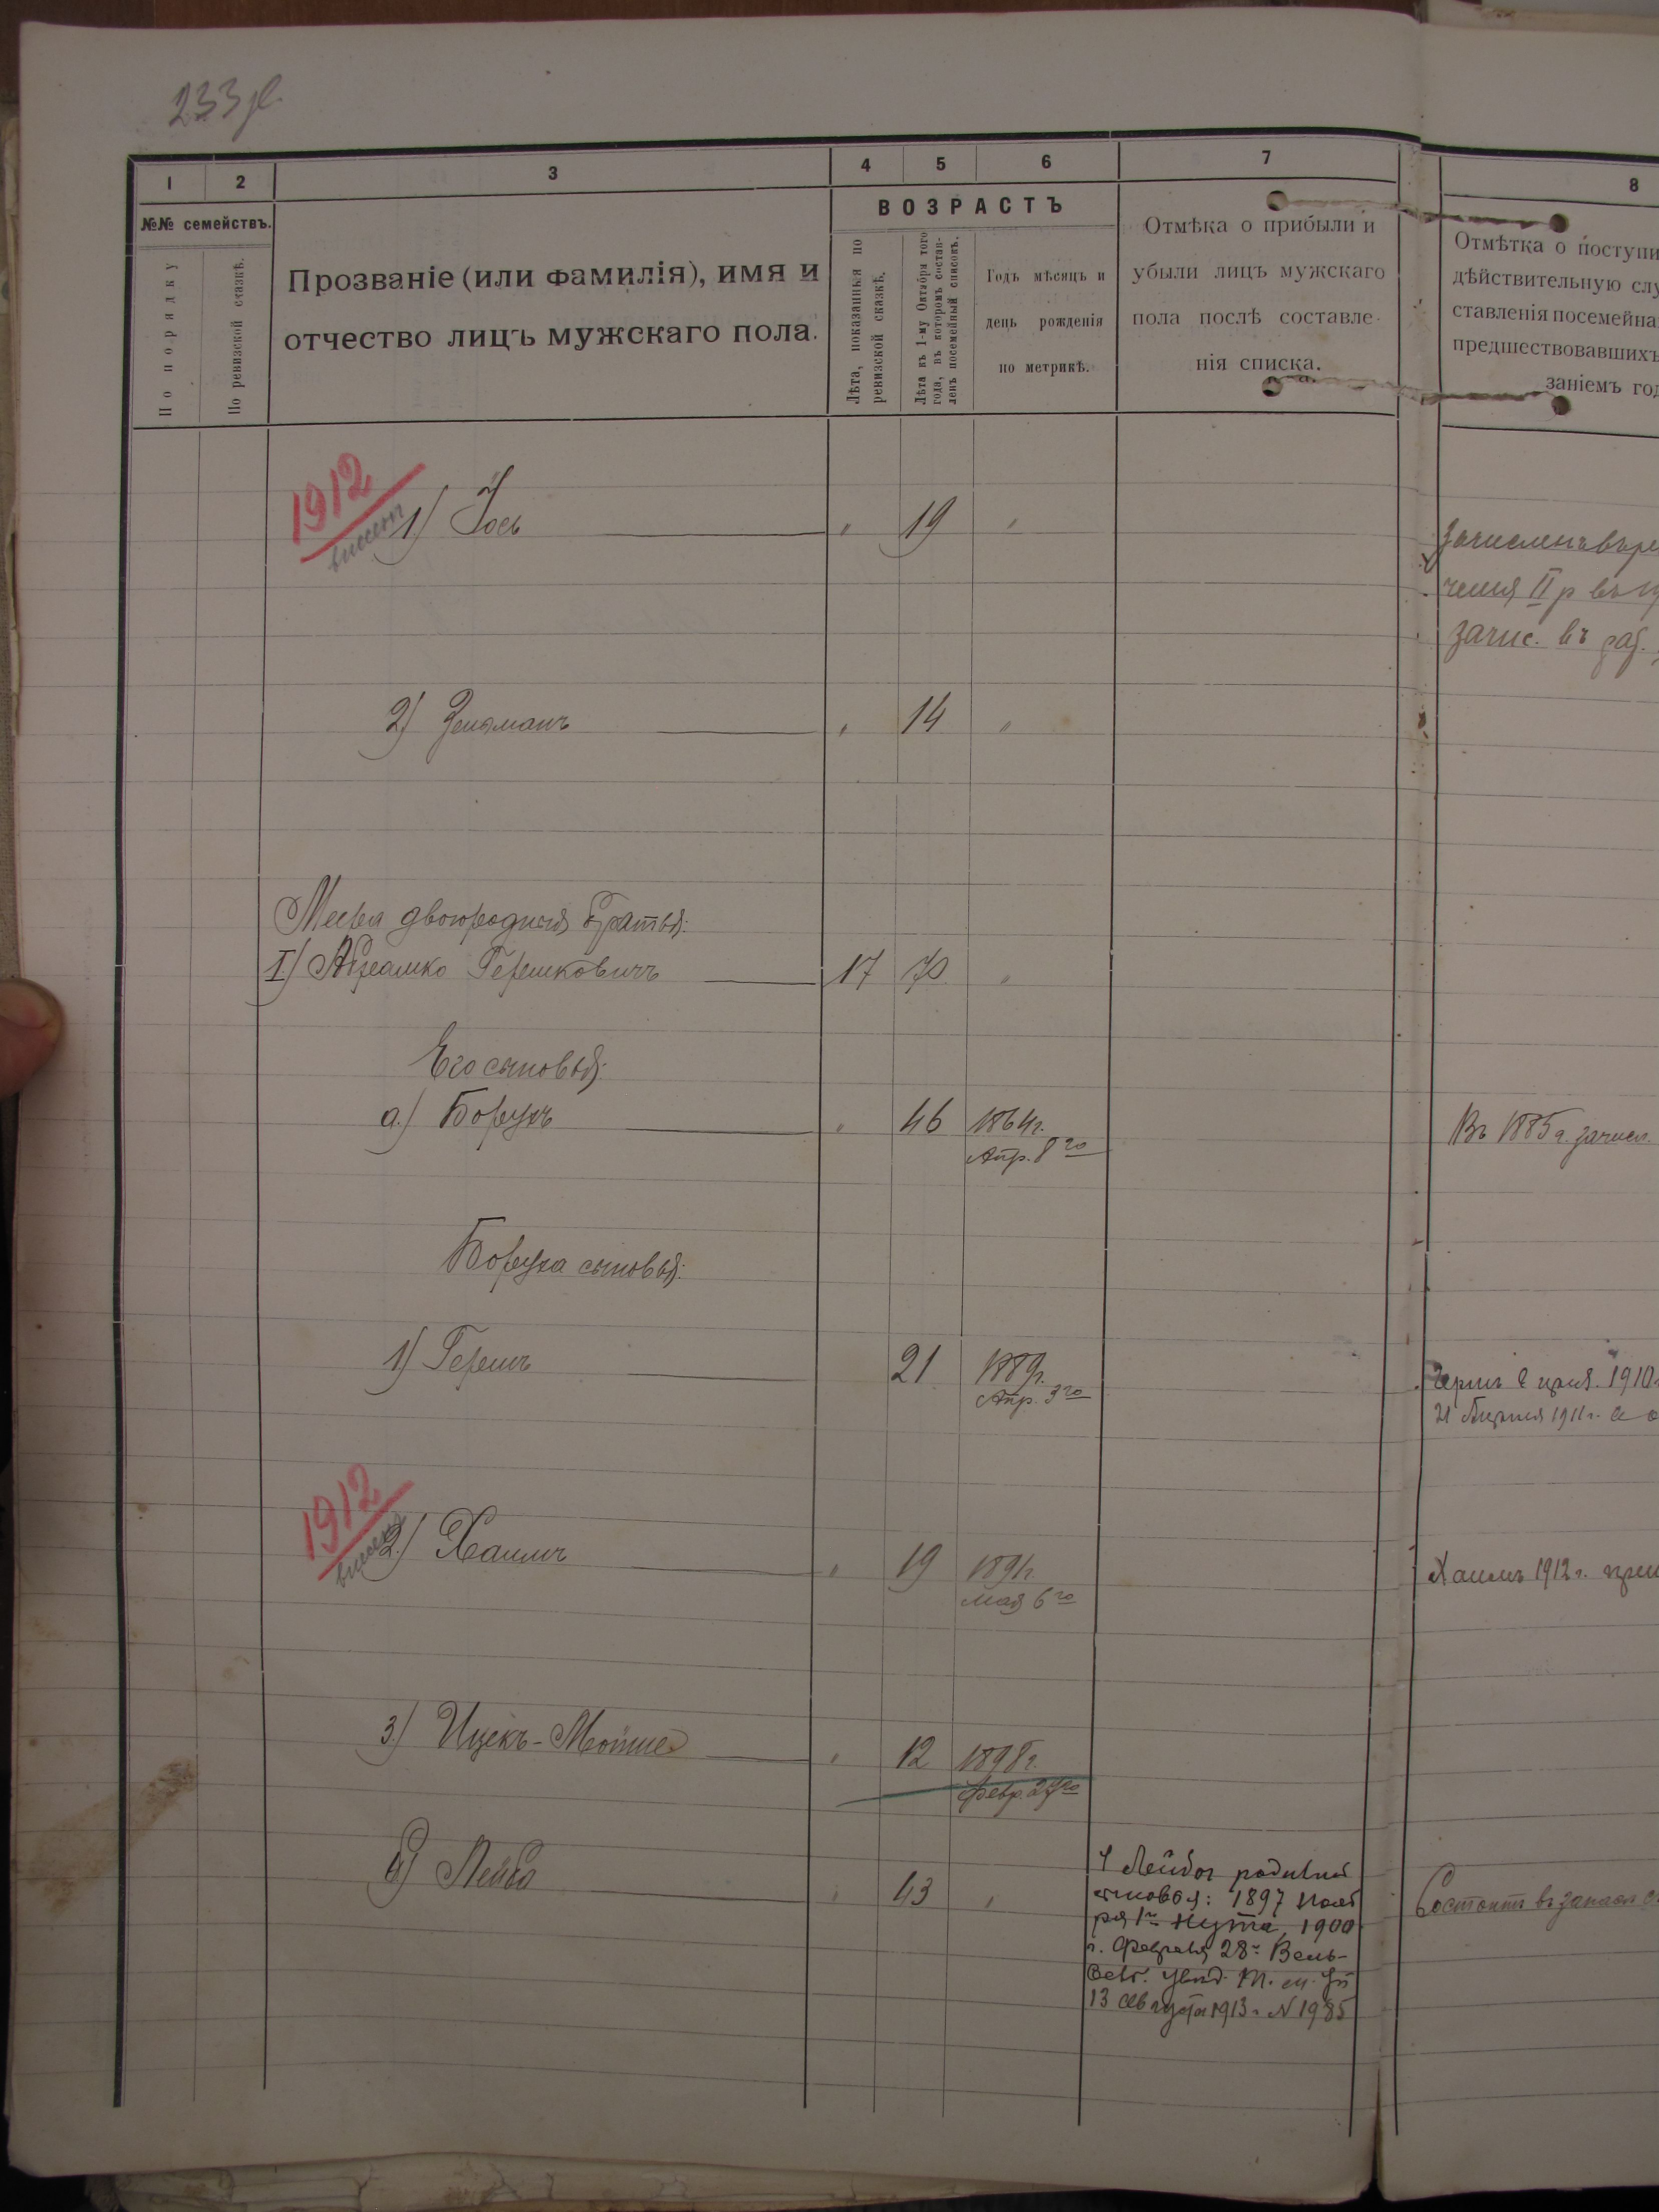 233
1 2 3 4 5 6 7 8
№№ семействъ.
По порядку
По ревизской сказкѣ.
Прозваніе (или фамилія), имя и
отчество лицъ мужскаго пола.
ВОЗРАСТЪ
Лѣта, показанныя по
ревизской сказкѣ.
Лѣта къ 1-му Октября того
года, въ которомъ состав-
ленъ посемейный списокъ.
Годъ мѣсяцъ и
день рожденія
по метрикѣ.
Отмѣка о прибыли и
убыли лицъ мужскаго
пола послѣ составле-
нія списка.
Отмѣтка о поступи
дѣйствительную слу
ставленія посемейна
предшествовавшихъ
заніемъ год
1912
1) Іось " 19 "
зачисленъ въ
II р
зачис. въ
2) Зельманъ " 14 "
двоюродные братья:
I) Абрамко Гершковичъ 17 70 "
Его сыновья:
а.) Борухъ " 46 1864г.
Апр. 8го
Въ 1885г. зачисл.
Боруха сыновья:
1) Гершъ 21 1889г.
Апр. 3го
1910
21 1911г.
1912
2.) Хаимъ " 19 1891г.
мая 6го
Хаимъ 1912г.
3.) Ицекъ-Мойше " 12 1898г.
Февр. 27го
б) Лейба " 43 "
У Лейбы родились
сыновья: 1897 нояб
ря 1го Нута, 1900
г. Февраля 28го
13 августа 1913г. N 1985
Состоитъ въ запасѣ